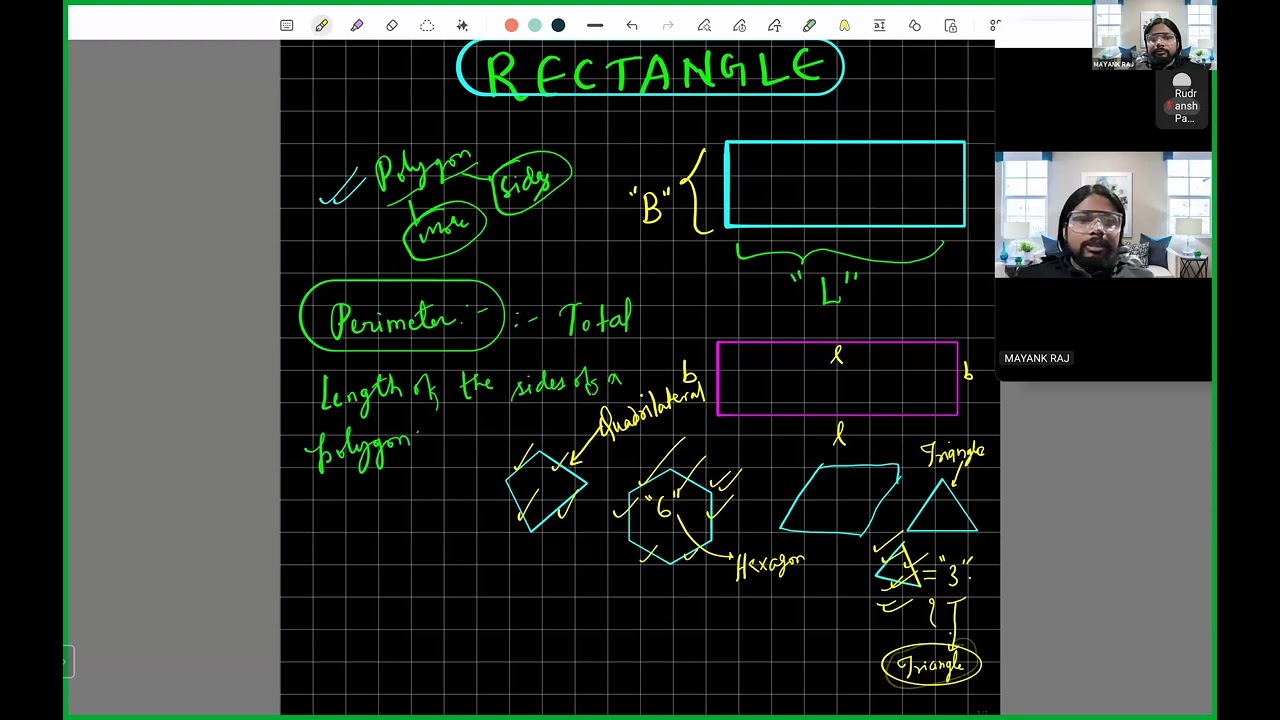 RECTANGLE
MAYANK RAJ
Rudr
ansh
Pa...
Polygon
sides
more
"B"
"L"
Perimeter:- :- Total
Length of the sides of a
polygon.
MAYANK RAJ
l
b
b
l
Quadrilateral
Triangle
"6"
Hexagon
= "3".
Triangle